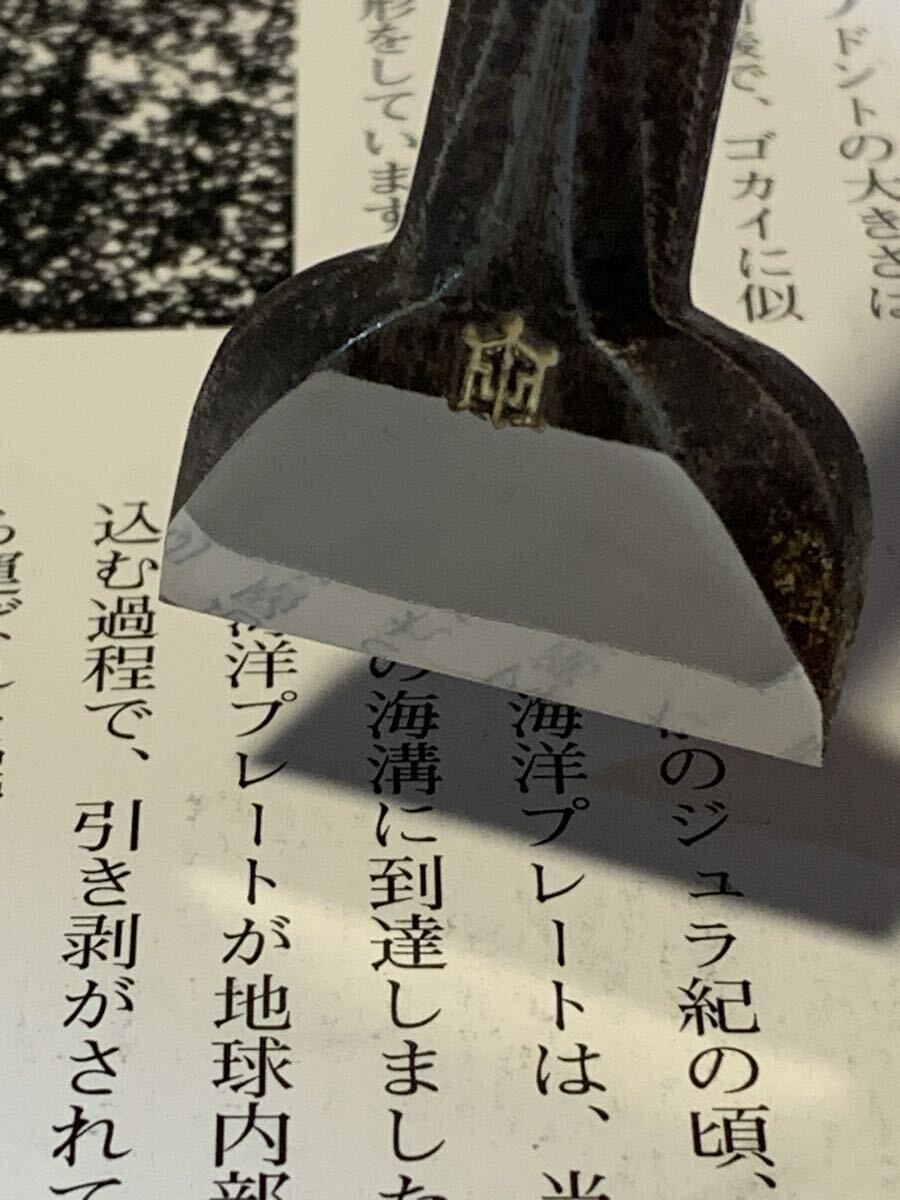 ドントの大きさは
で、ゴカイに似
形をしています
のジュラ紀の頃、
海洋プレートは、
の海溝に到達しました
洋プレートが地球内部
込む過程で、引き剥がされて